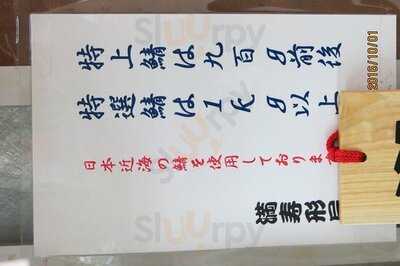 特上鯖は九百g前後
特選鯖は1Kg以上
日本近海の鯖を使用しております
満寿形
2016/10/01
Slurpy